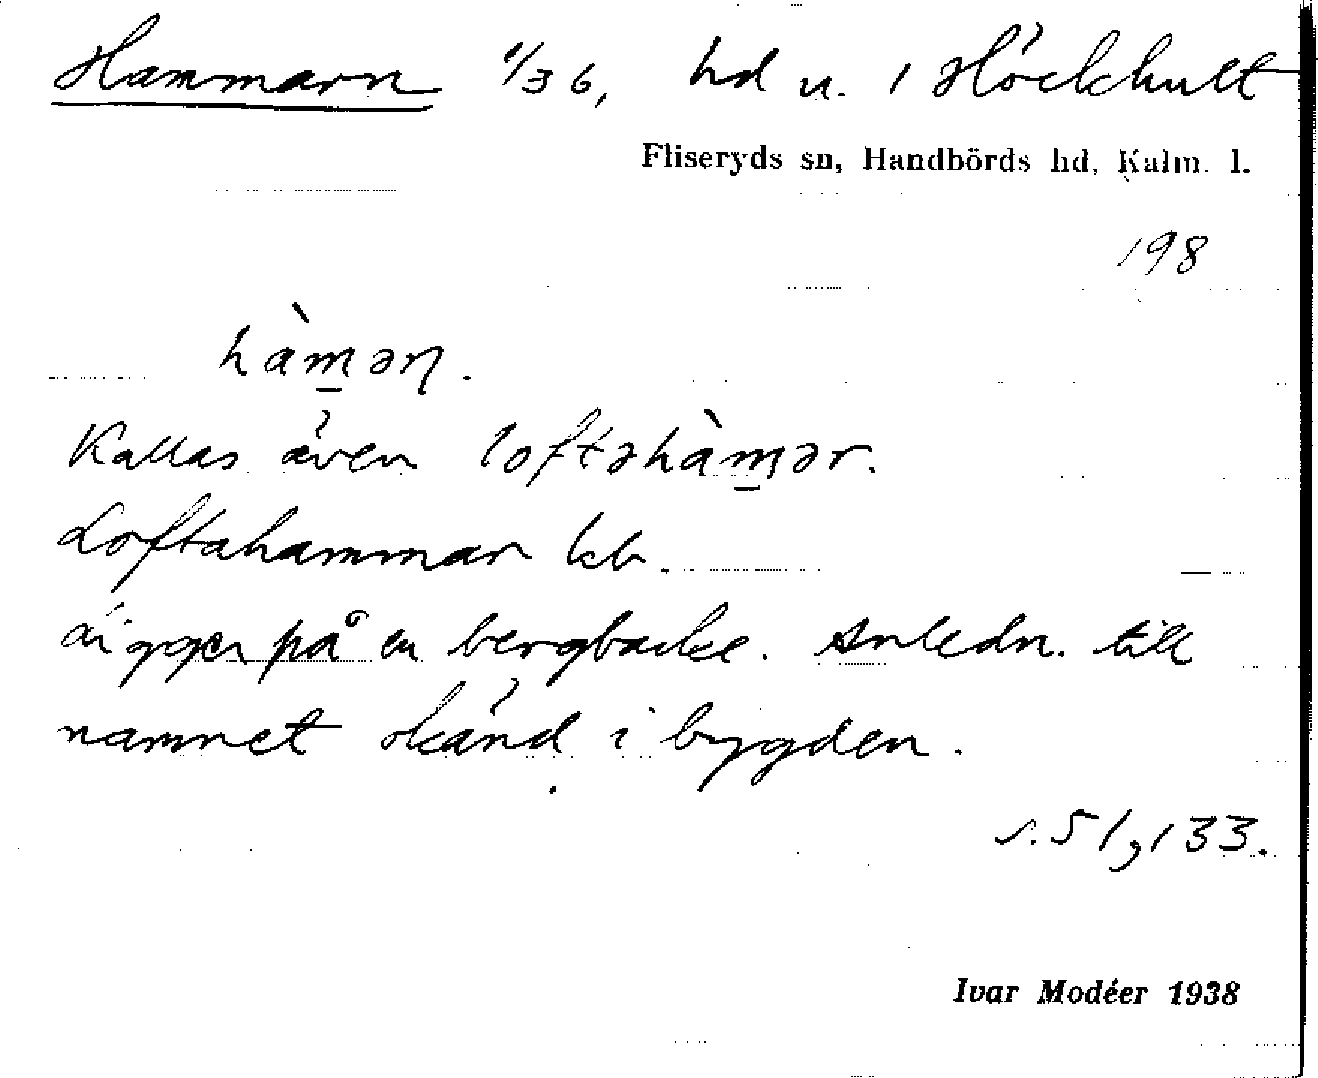 Hammarn 1/36, hd u. 1 Höckhult
Fliseryds sn, Handbörds hd, Kalm. l.
198
hàm̲ən.
Kallas även loftəhàm̲ər.
Loftahammar kb.
Ligger på en bergbacke. Anledn. till
namnet okänd i bygden.
s. 51, 133.
Ivar Modéer 1938